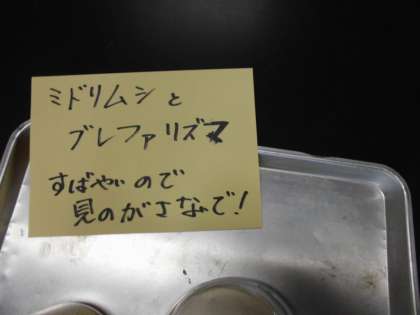 ミドリムシと
ブレファリズマ
すばやいので
見のがさないで!